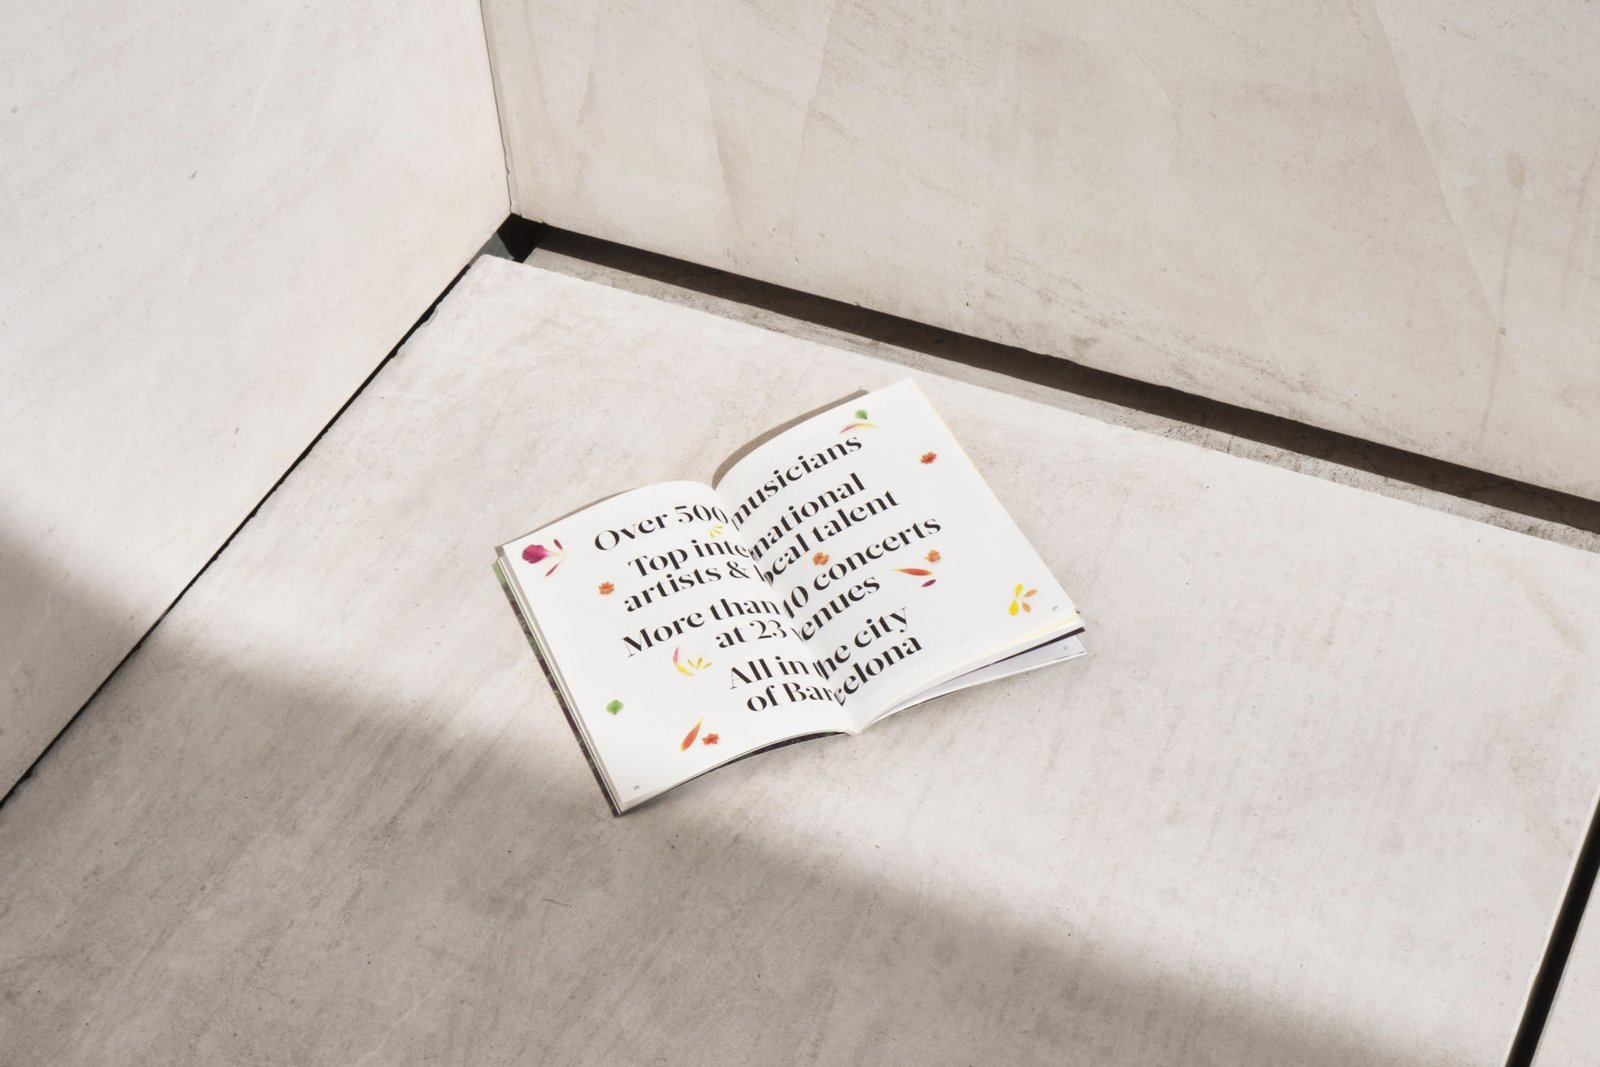 Over 500 musicians
Top international
artists & local talent
More than concerts
at 23 venues
All in the city
of Barcelona